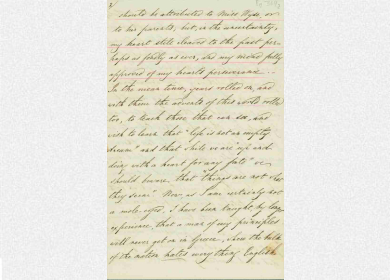 should be attributed to Miss Wyse, or
to her parents; but, in the uncertainty,
my heart still cleaved to the past per-
haps as fondly as ever, and my mind fully
approved of my heart's perseverance...
In the mean time, years rolled on, and
with them the events of this world rolled
too, to teach those that can see, and
wish to learn that "life is not an empty
dream" and that while we are "up and
doing with a heart for any fate" we
should beware, that "things are not what
they seem." Now, as I am certainly not
a mole-eyed, I have been taught, by long
experience, that a man of my principles
will never get on in Greece, where the bulk
of the nation hates every thing English